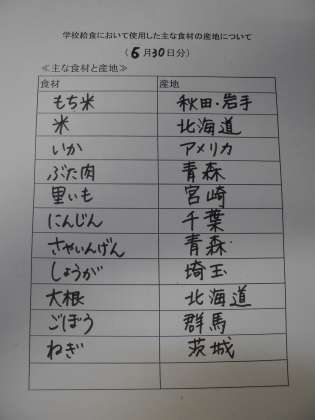 学校給食において使用した主な食材の産地について
（6月30日分）
≪主な食材と産地≫
食材 産地
もち米 秋田・岩手
米 北海道
いか アメリカ
ぶた肉 青森
里いも 宮崎
にんじん 千葉
さやいんげん 青森
しょうが 埼玉
大根 北海道
ごぼう 群馬
ねぎ 茨城